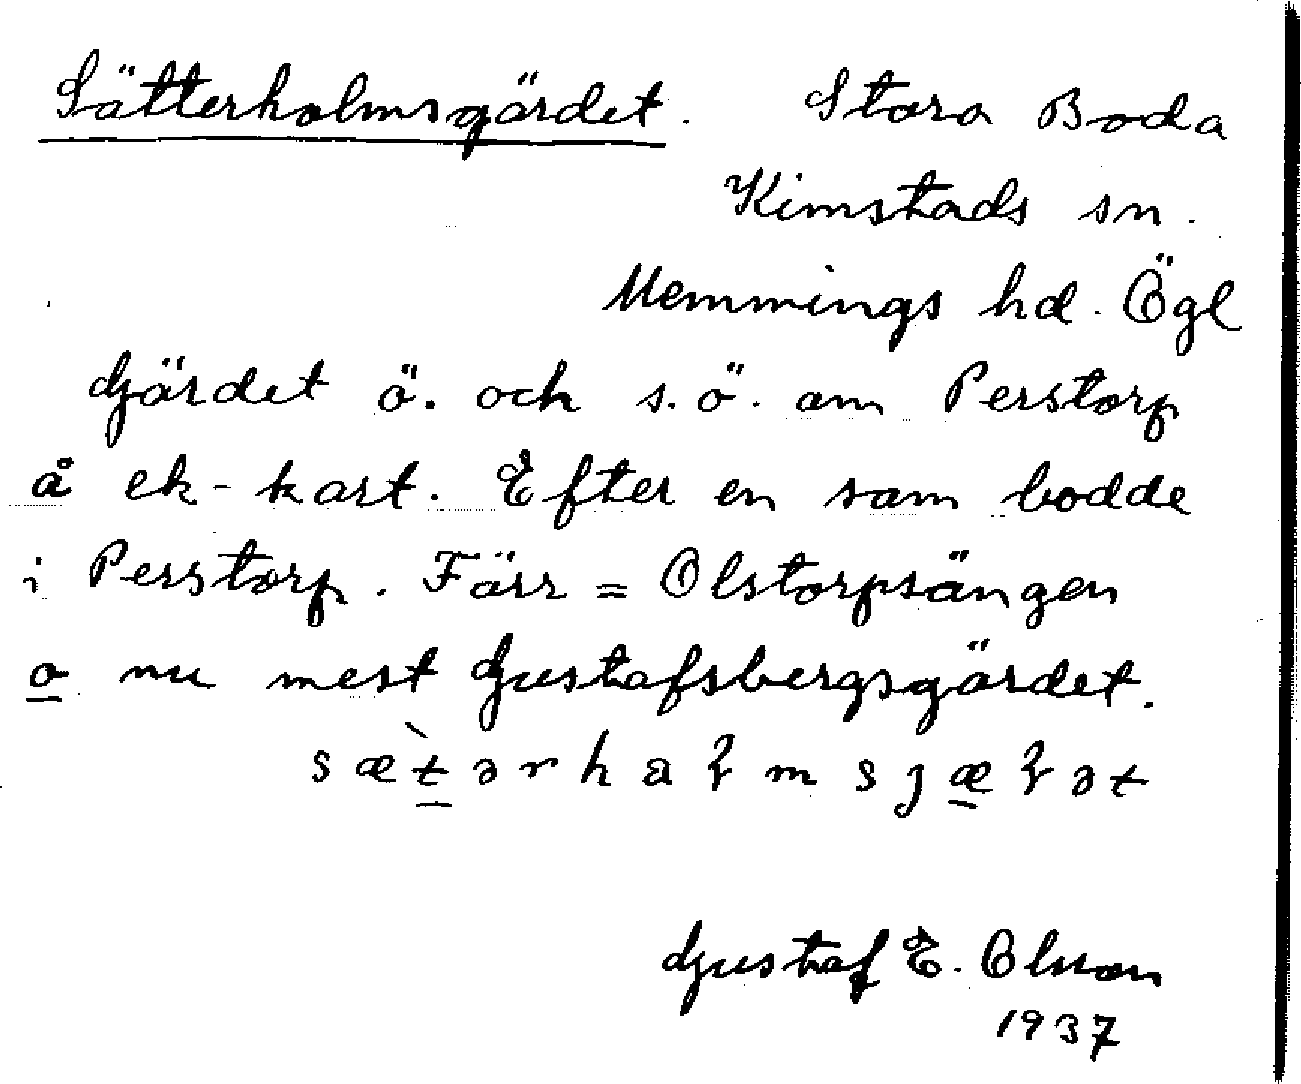 Sätterholmsgärdet. Stora Boda
Kimstads sn.
Memmings hd. Ögl
Gärdet ö. och s.ö. om Perstorp
å ek-kart. Efter en som bodde
i Perstorp. Förr = Olstorpsängen
o nu mest Gustafsbergsgärdet.
sæ̀tərhaɽmsjæɽət
Gustaf E. Olsson
1937